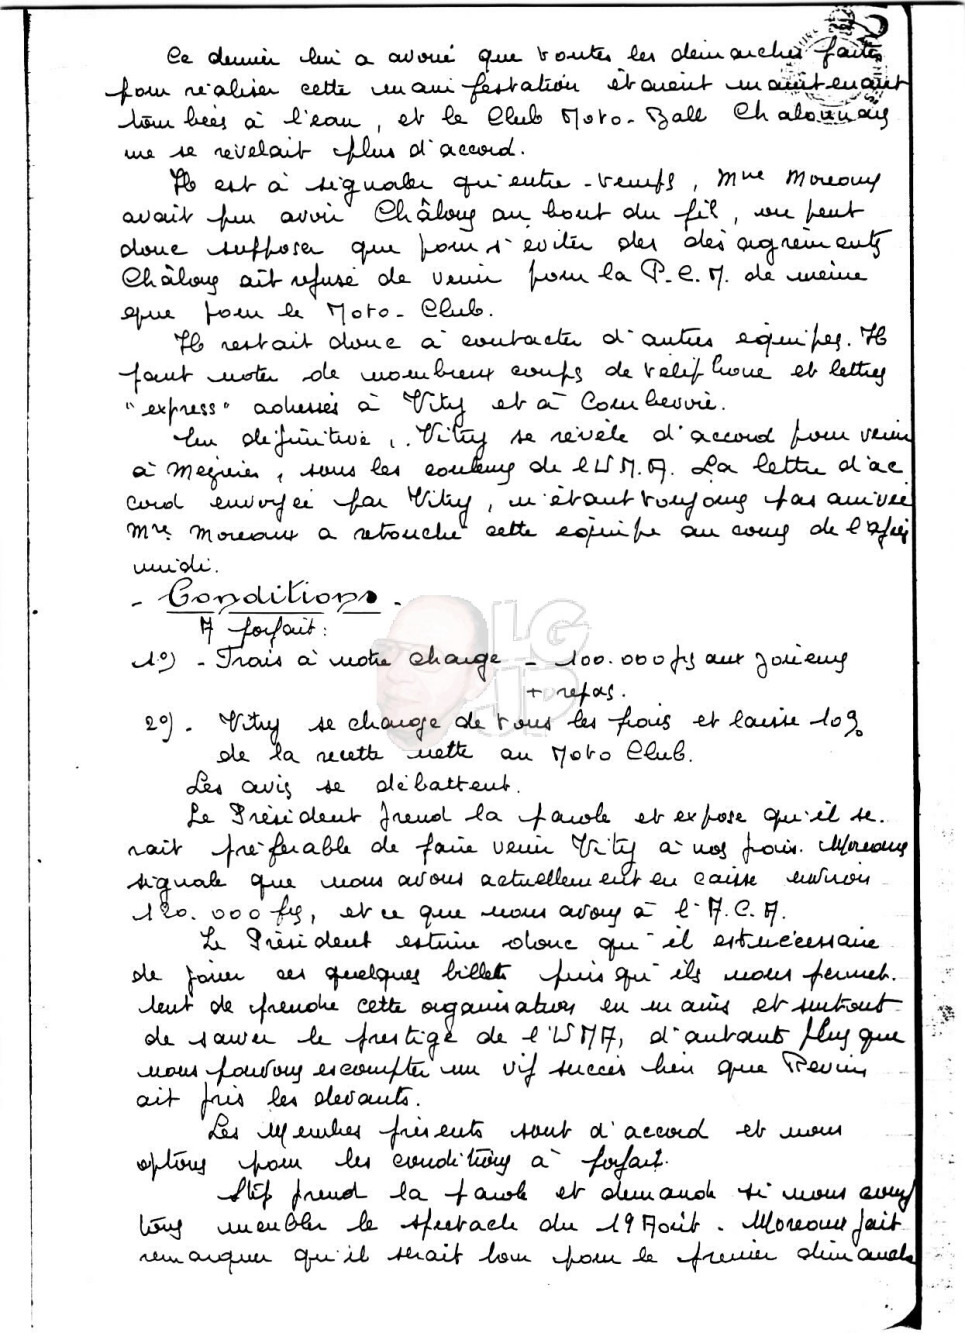 Ce dernier lui a avoué que toutes les démarches faites
pour réaliser cette manifestation étaient maintenant
tombées à l'eau, et le Club Moto-Ball Chalonnais
ne se revelait plus d'accord.
Il est à signaler qu'entre-temps, Mme Moreaux
avait pu avoir Châlons au bout du fil, on peut
donc supposer que pour s'éviter des désagréments
Châlons ait refusé de venir pour la P.C.M. de même
que pour le Moto-Club.
Il restait donc à contacter d'autres équipes. Il
faut noter de nombreux coups de téléphone et lettres
"express" adressés à Vitry et à Courbevoie.
En définitive, Vitry se révèle d'accord pour venir
à Mézières, sous les couleurs de l'USMA. La lettre d'ac
cord envoyée par Vitry, n'étant toujours pas arrivée
Mme Moreaux a retouché cette équipe au cours de l'après
midi.
- Conditions -
A forfait:
1°) - Frais à notre charge - 100.000 frs aux joueurs
+ repas.
2°) - Vitry se charge de tous les frais et laisse 10%
de la recette nette au Moto Club.
Les avis se débattent.
Le Président prend la parole et expose qu'il se-
rait préférable de faire venir Vitry à nos frais. Moreaux
signale que nous avons actuellement en caisse environ
120.000 frs, et ce que nous avons à l'A.C.A.
Le Président estime donc qu'il est nécessaire
de jouer ces quelques billets puisqu'ils nous permet-
tent de prendre cette organisation en mains et surtout
de sauver le prestige de l'USMA, d'autant plus que
nous pouvons escompter un vif succès bien que Revin
ait pris les devants.
Les Membres présents sont d'accord et nous
optons pour les conditions à forfait.
Stip prend la parole et demande si nous avons
tous meubler le spectacle du 19 Août. Moreaux fait
remarquer qu'il serait bon pour le premier dimanche